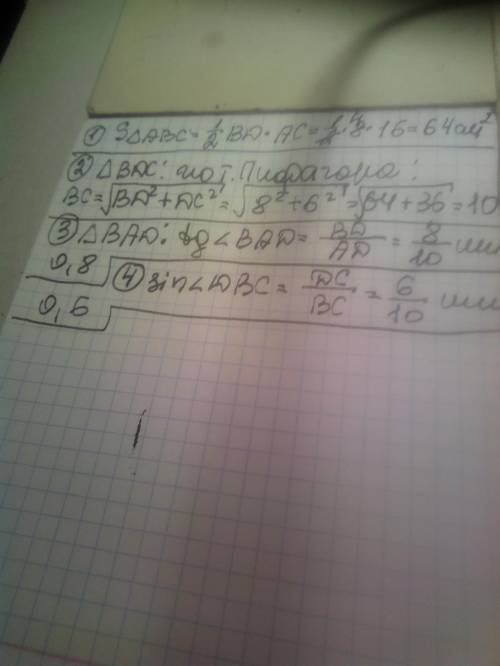 ① S△ABC = 1/2 BD · AC = 1/2 · 8 · 16 = 64 см²
② △BDC: по т. Пифагора:
BC = √BD² + DC² = √8² + 6² = √64 + 36 = 10
③ △BAD: tg∠BAD = BD/AD = 8/10 или
0,8
④ sin∠DBC = DC/BC = 6/10 или
0,6